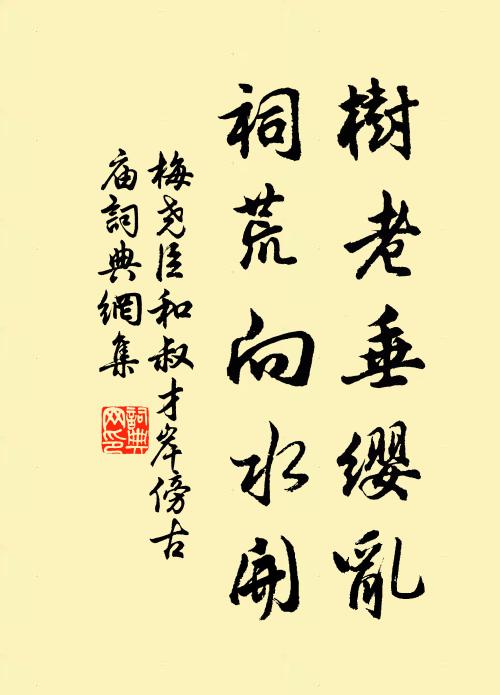 樹老垂纓亂
祠荒向水開
梅尧臣和叔才岸傍古
庙詞典網集
詞典网印